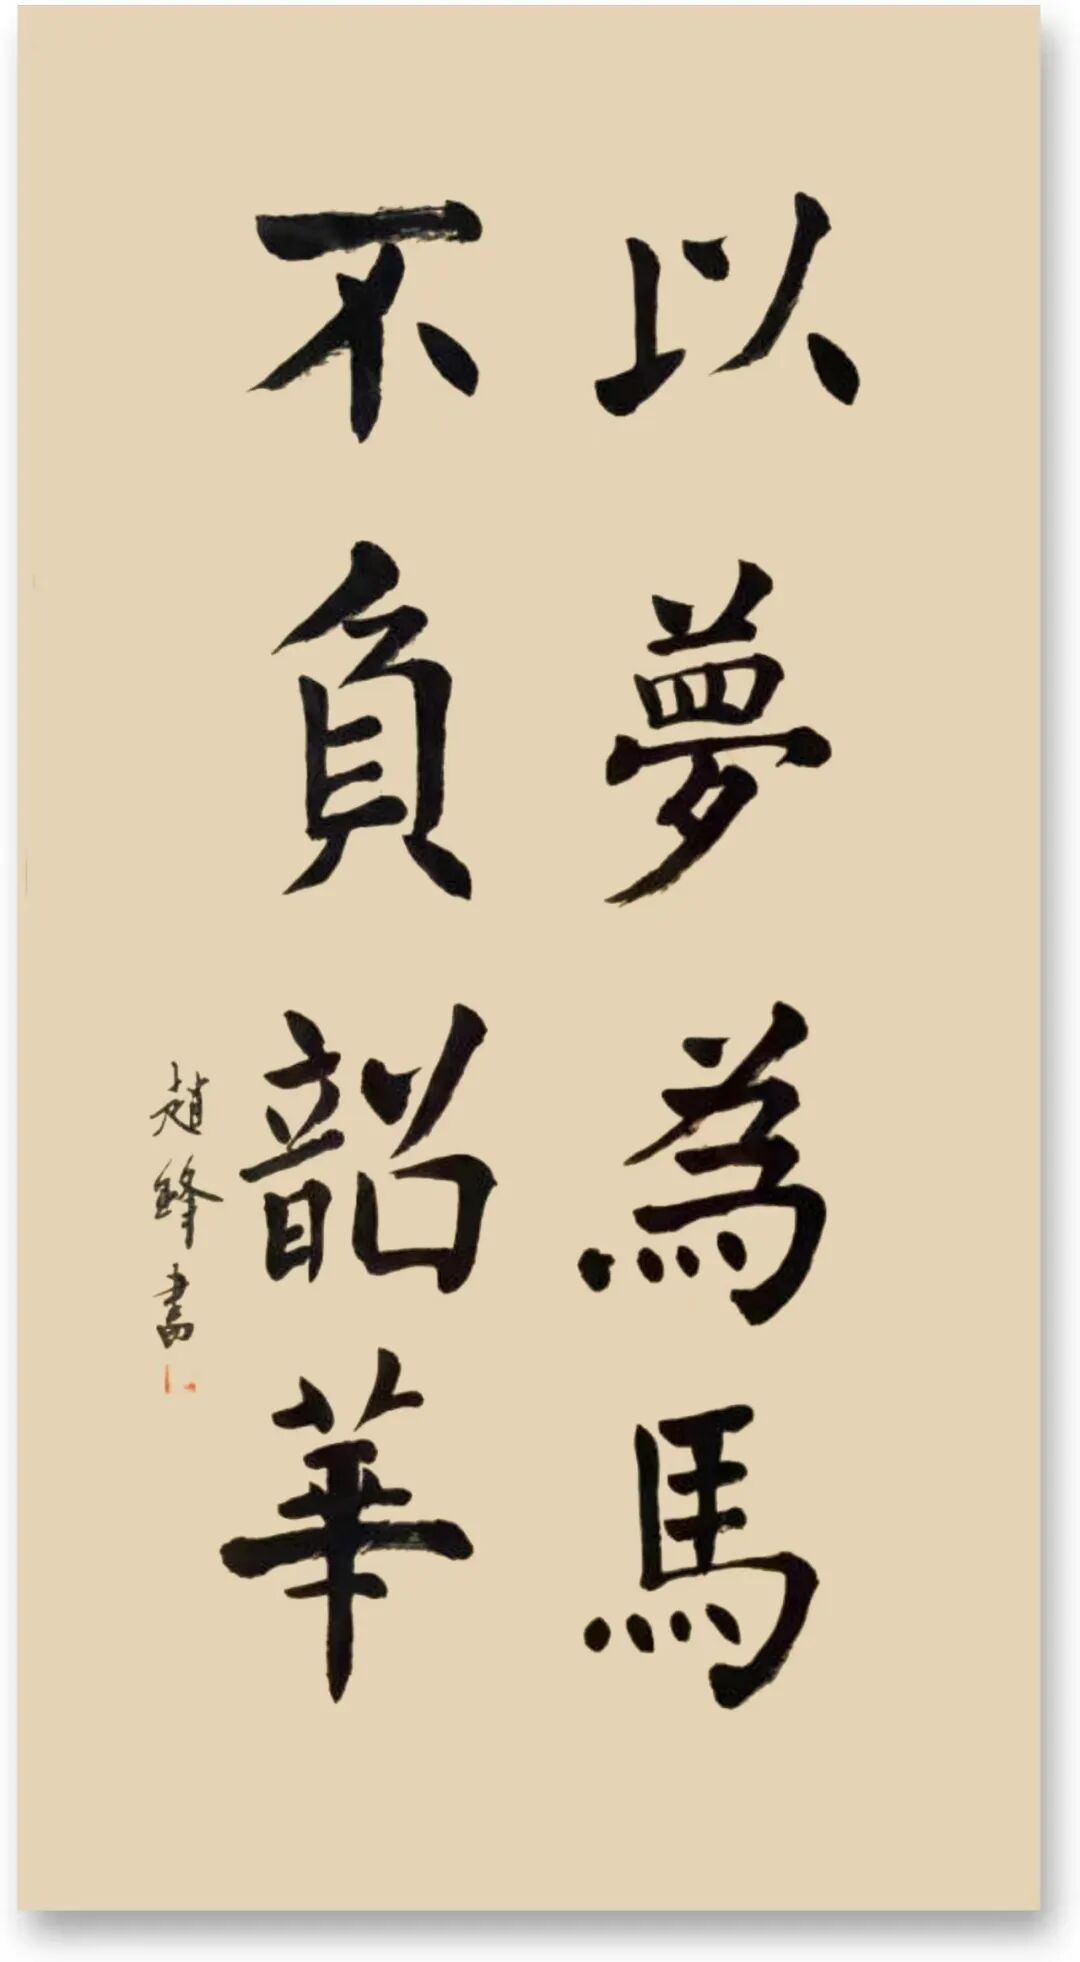 以夢為馬
不負韶華
趙鋒書